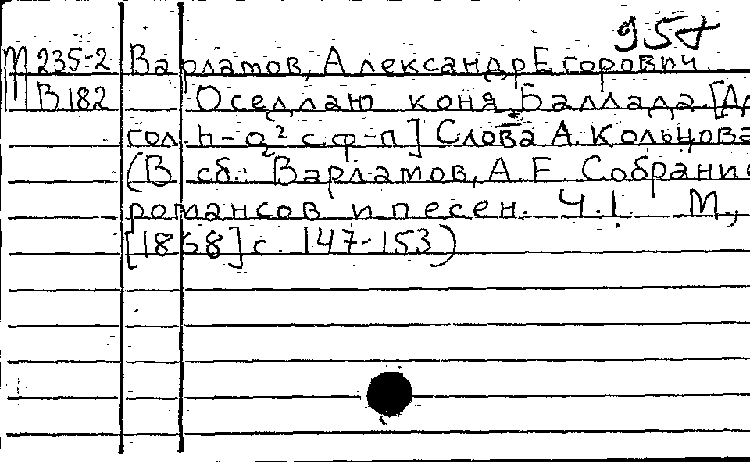 957
М 235-2 Варламов, Александр Егорович
В 182 Оседлаю коня. Баллада. [Дл
гол. h-a² с ф-п] Слова А. Кольцова
(В сб.: Варламов, А. Е. Собрание
романсов и песен. Ч. I. М.,
[1868] с. 147-153)